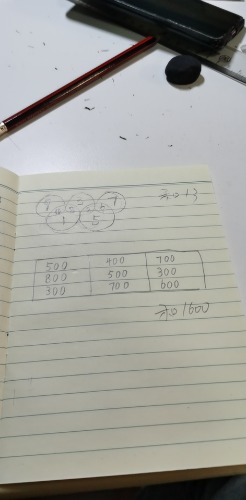 和 13
1 5
500 400 700
800 500 300
300 700 600
和 1600